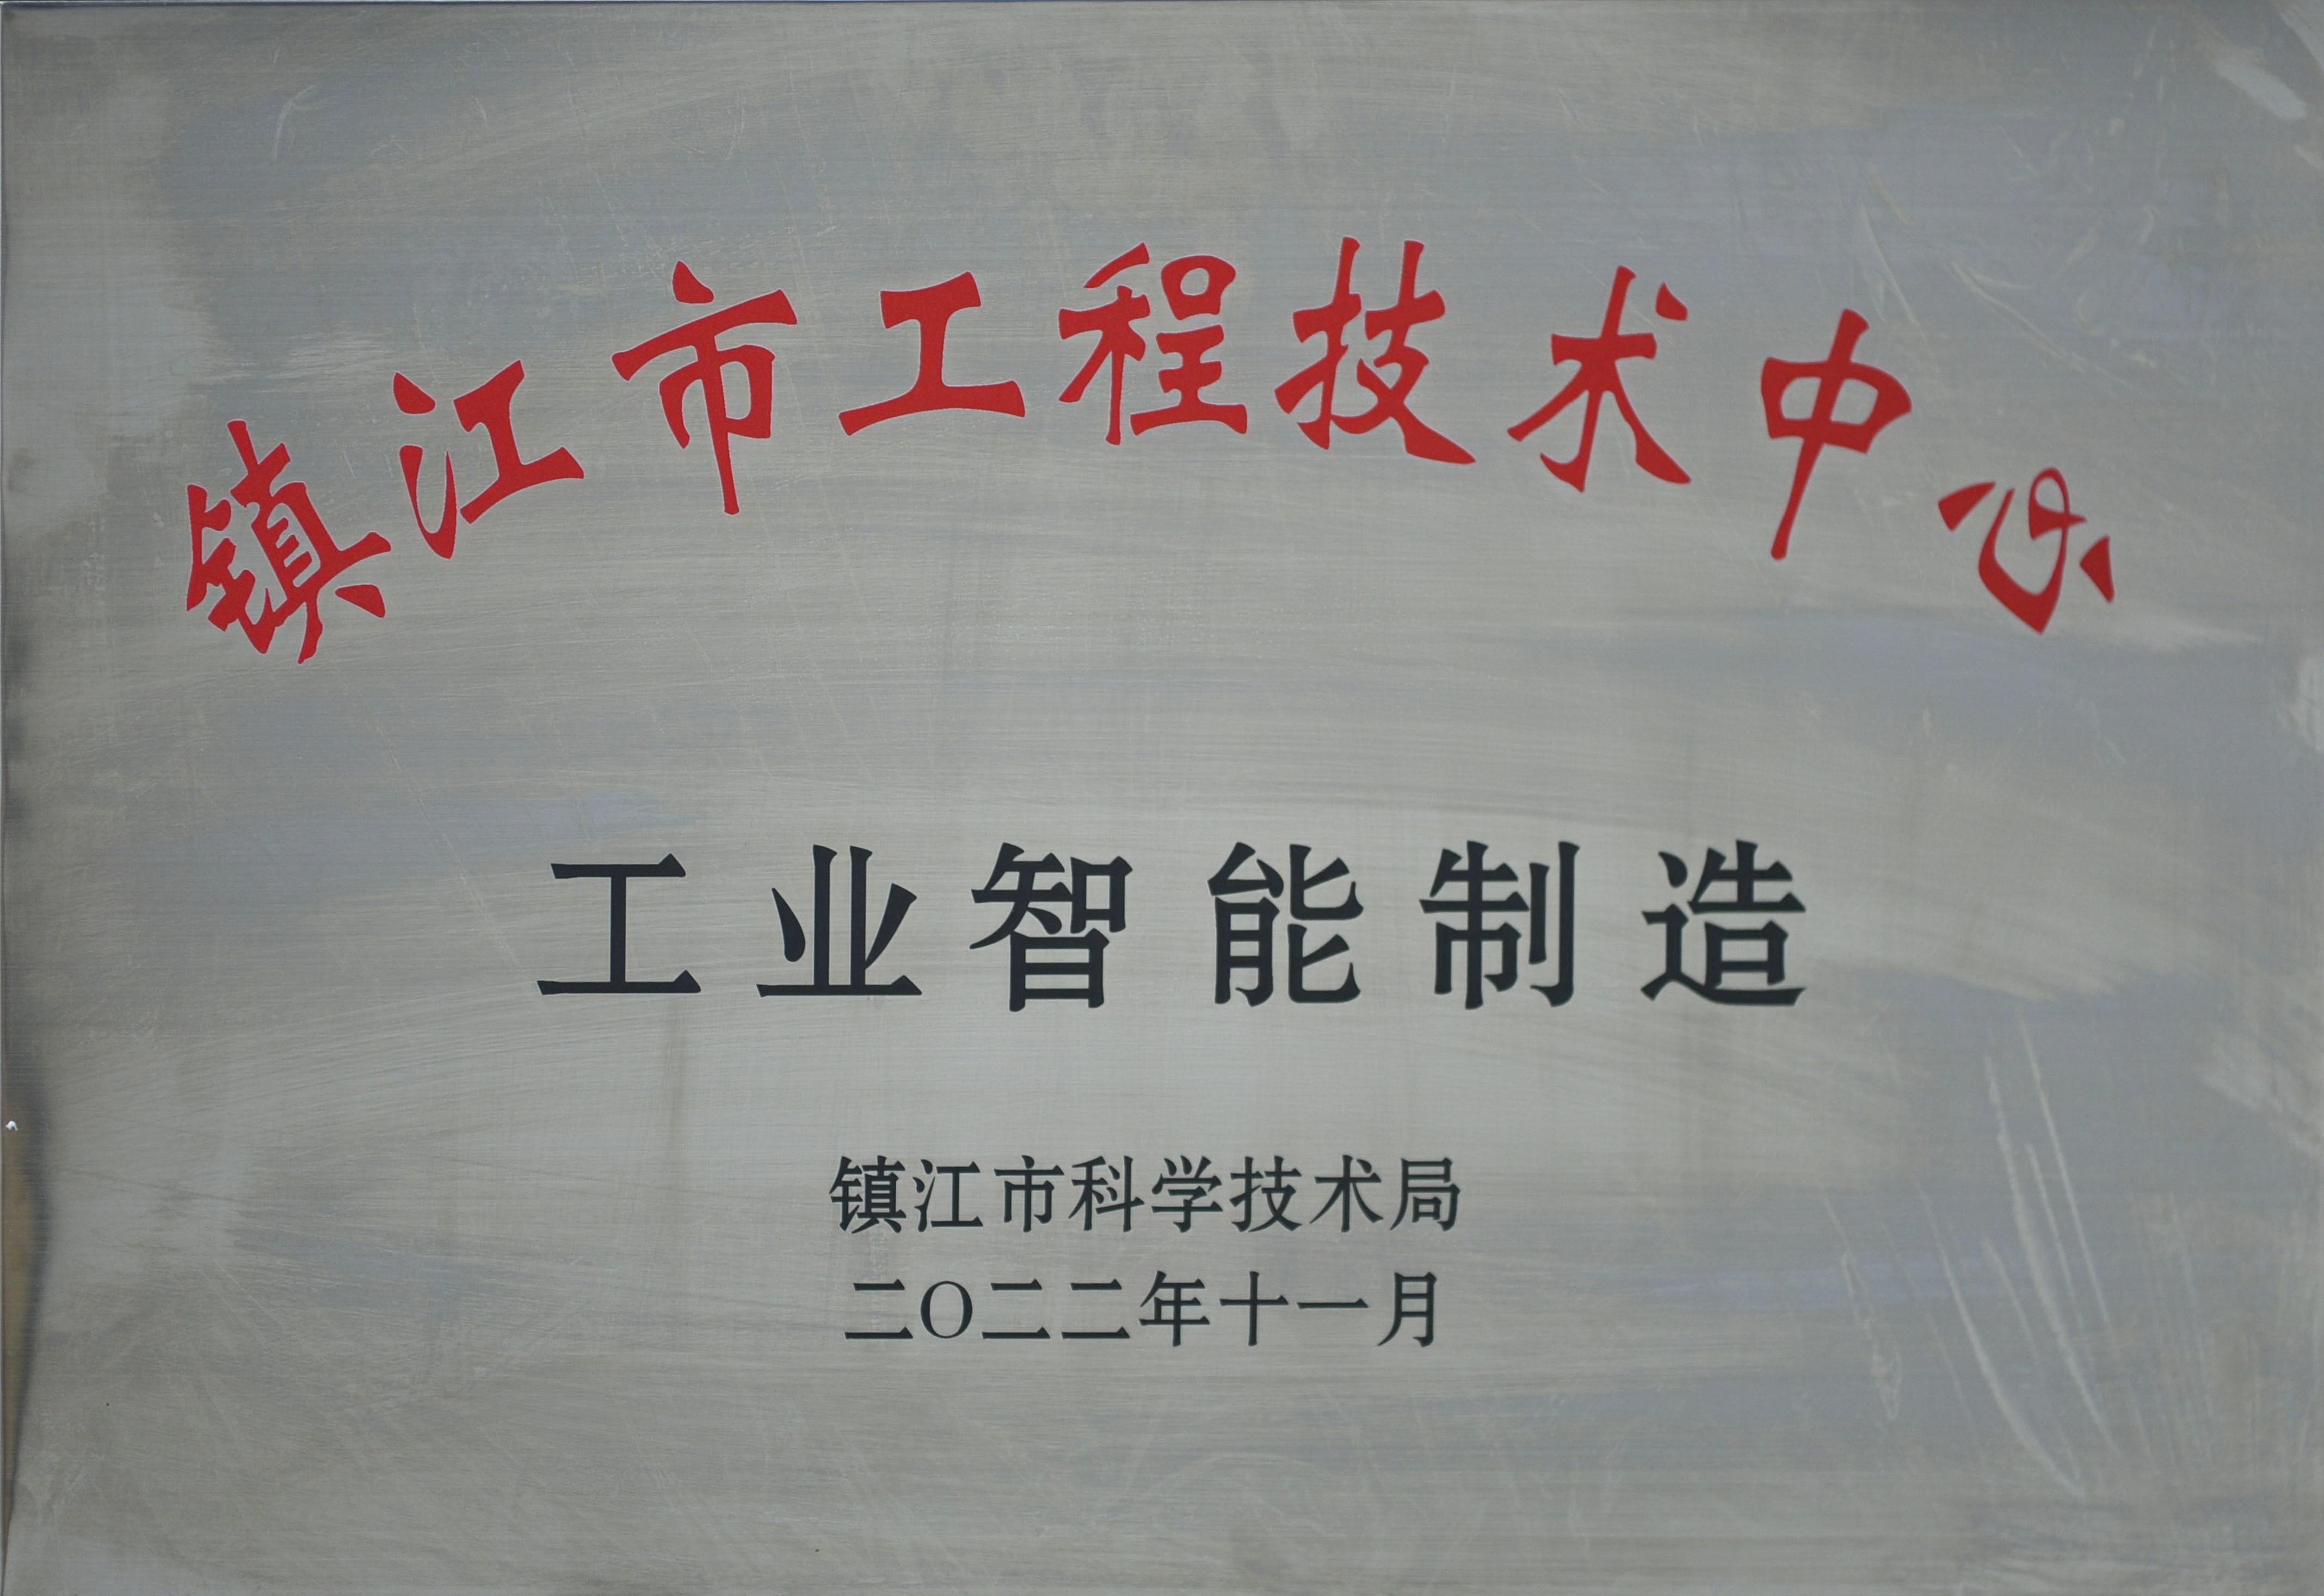 镇江市工程技术中心
工业智能制造
镇江市科学技术局
二〇二二年十一月